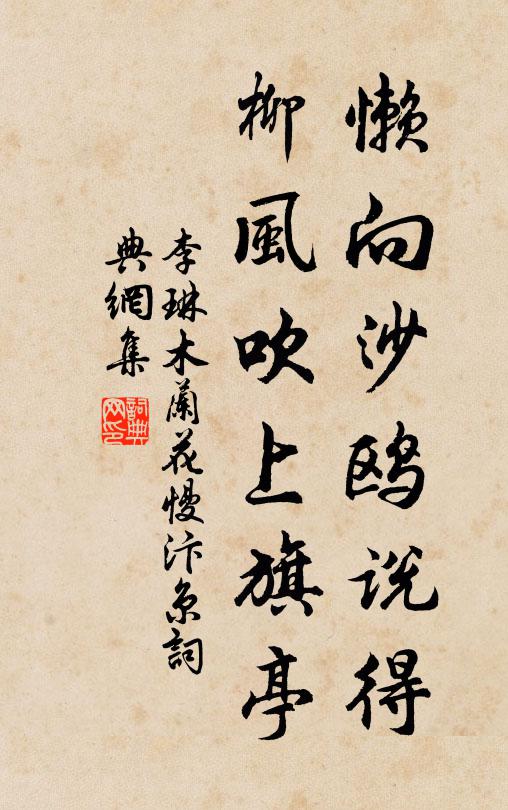 懒向沙鸥说得
柳風吹上旗亭
李琳木蘭花慢汴京詞
典網集
詞典网印